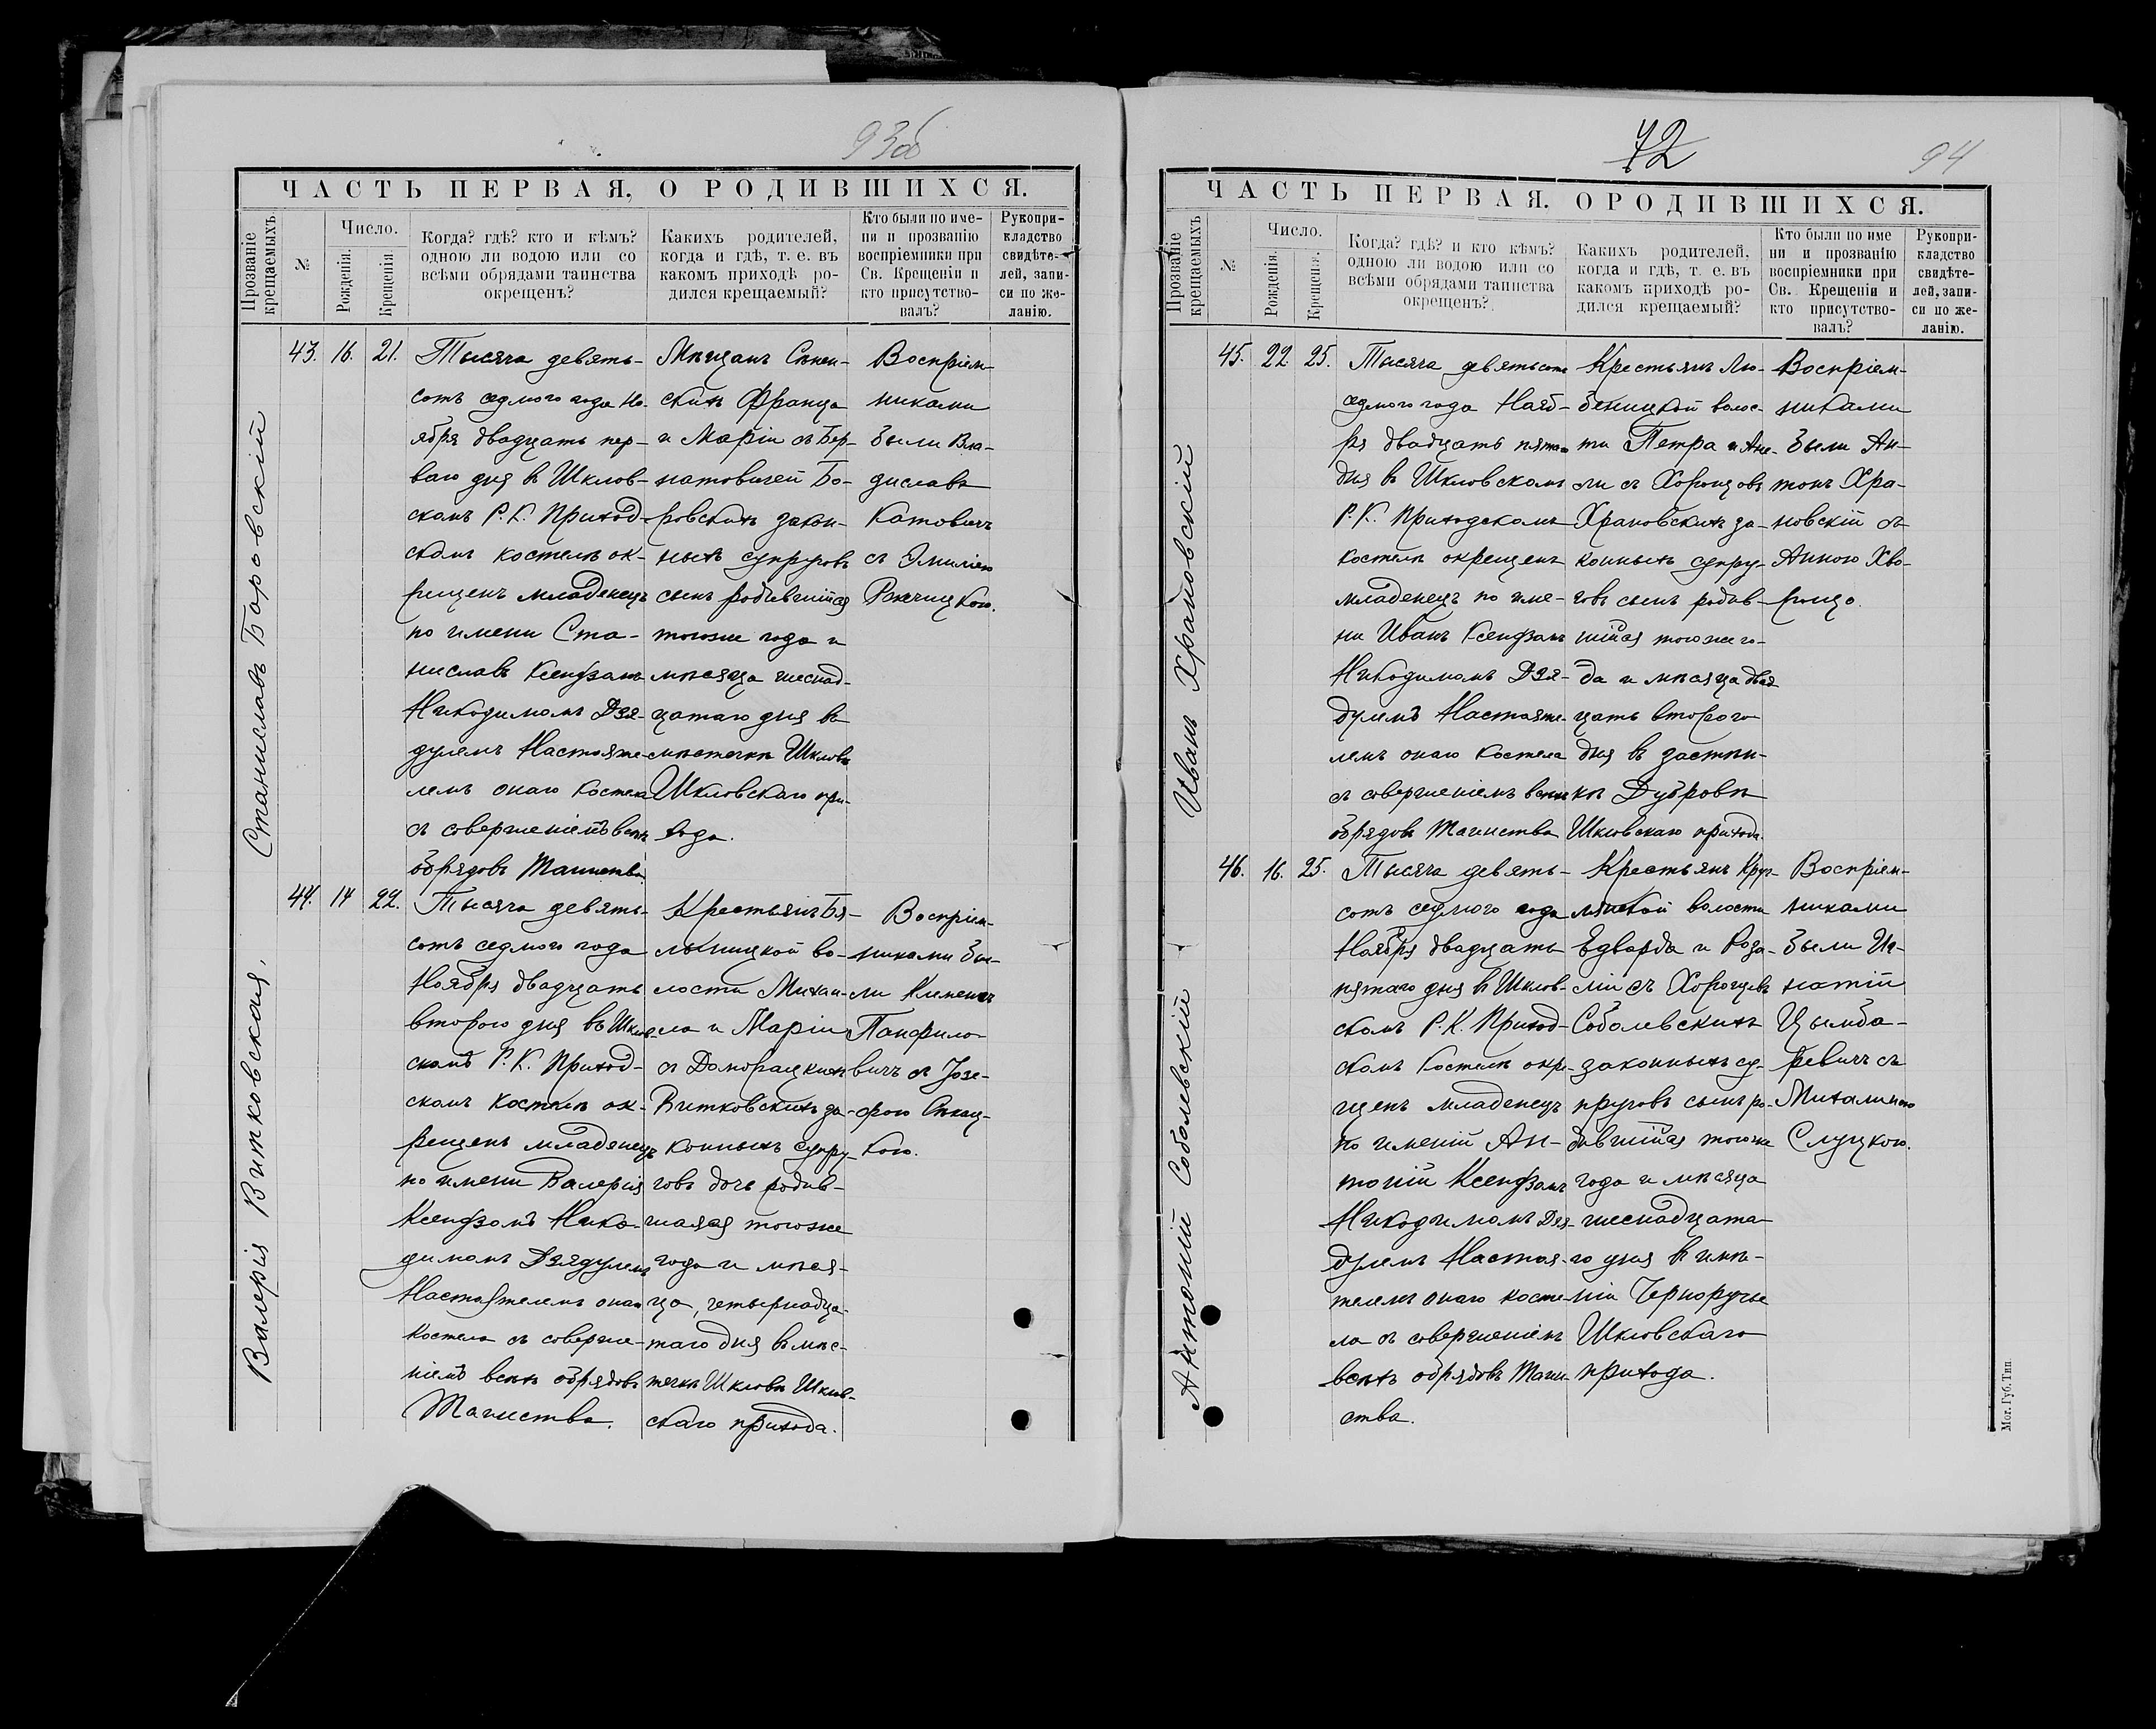 93об
ЧАСТЬ ПЕРВАЯ, О РОДИВШИХСЯ.
Прозваніе крещаемыхъ
№
Число.
Рожденія.
Крещенія.
Когда? гдѣ? кто и кѣмъ?
одною ли водою или со
всѣми обрядами таинства
окрещенъ?
Какихъ родителей,
когда и гдѣ, т. е. въ
какомъ приходѣ ро-
дился крещаемый?
Кто были по име-
ни и прозванію
воспріемники при
Св. Крещеніи и
кто присутство-
валъ?
Рукопри-
кладство
свидѣте-
лей, запи-
си по же-
ланію.
Станиславъ Боровскій
43. 16. 21.
Тысяча девять-
сотъ седмого года Но-
ября двадцать пер-
ваго дня въ Шклов-
скомъ Р. К. Приход-
скомъ костелѣ ок-
рещенъ младенецъ
по имени Ста-
ниславъ Ксендзомъ
Никодимомъ Дзя-
дулемъ Настояте-
лемъ онаго Костела
съ совершеніемъ всѣхъ
обрядовъ Таинства.
Мѣщанъ Сѣнен-
скихъ Франца
и Маріи съ Бер-
натовичей Бо-
ровскихъ закон-
ныхъ супруговъ
сынъ родившійся
тогоже года и
мѣсяца шеснад-
цатаго дня въ
мѣстечкѣ Шкловѣ
Шкловскаго при-
хода.
Воспріем-
никами
были Вла-
диславъ
Катовичъ
съ Эмиліею
Валерія Витковская.
44. 14 22.
Тысяча девять-
сотъ седмого года
Ноября двадцать
второго дня въ Шклов-
скомъ Р. К. Приход-
скомъ костелѣ ок-
рещенъ младенецъ
по имени Валерія
Ксендзомъ Нико-
димомъ Дзядулемъ
Настоятелемъ онаго
Костела съ соверше-
ніемъ всѣхъ обрядовъ
Таинства.
Крестьянъ Бя-
лыницкой во-
лости Михаи-
ла и Маріи
съ Доморацкихъ
Витковскихъ за-
конныхъ супру-
говъ дочь родив-
шаяся тогоже
года и мѣся-
ца, четырнадца-
таго дня въ мѣс-
течкѣ Шкловѣ Шклов-
скаго прихода.
Воспріем-
никами бы-
ли Клеменсъ
Панфило-
вичъ съ Юзе-
фою
кою.
72
94
ЧАСТЬ ПЕРВАЯ. О РОДИВШИХСЯ.
Прозваніе крещаемыхъ
№
Число.
Рожденія.
Крещенія.
Когда? гдѣ? и кто кѣмъ?
одною ли водою или со
всѣми обрядами таинства
окрещенъ?
Какихъ родителей,
когда и гдѣ, т. е. въ
какомъ приходѣ ро-
дился крещаемый?
Кто были по име
ни и прозванію
воспріемники при
Св. Крещеніи и
кто присутство-
валъ?
Рукопри-
кладство
свидѣте-
лей, запи-
си по же-
ланію.
Иванъ Храновскій
45. 22 25.
Тысяча девятьсотъ
седмого года Нояб-
ря двадцать пятаго
дня въ Шкловскомъ
Р. К. Приходскомъ
костелѣ окрещенъ
младенецъ по име-
ни Иванъ Ксендзомъ
Никодимомъ Дзя-
дулемъ Настояте-
лемъ онаго Костела
съ совершеніемъ всѣхъ
обрядовъ Таинства
Крестьянъ Лю-
беницкой волос-
ти Петра и Ане-
ли съ Хоронцовъ
Храновскихъ за-
конныхъ супру-
говъ сынъ родив-
шійся тогоже го-
да и мѣсяца двад
цать второго
дня въ застѣн-
кѣ Дубровѣ
Шкловскаго прихода.
Воспріем-
никами
были Ан-
тонъ Хра-
новскій съ
Анною Хво-
рощо.
Антоній Соболевскій
46. 16. 25.
Тысяча девять-
сотъ седмого года
Ноября двадцать
пятаго дня въ Шклов-
скомъ Р. К. Приход-
скомъ Костелѣ окре-
щенъ младенецъ
по имени Ан-
тоній Ксендзомъ
Никодимомъ Дзя-
дулемъ Настоя-
телемъ онаго косте-
ла съ совершеніемъ
всѣхъ обрядовъ Таин-
ства.
Крестьянъ Круг-
лянской волости
Едварда и Роза-
ліи съ Хоронцовъ
Соболевскихъ
законныхъ су-
пруговъ сынъ ро-
дившійся тогоже
года и мѣсяца
шеснадцата-
го дня въ имѣ-
ніи Черноручье
Шкловскаго
прихода.
Воспріем-
никами
были Иг-
натій
Цымба-
ревичъ съ
Михалиною
Слуцкою.
Мог. Губ. Тип.